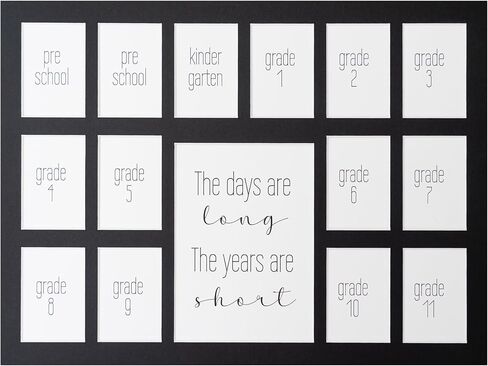 pre
school
pre
school
kinder
garten
grade
1
grade
2
grade
3
grade
4
grade
5
The days are
long
The years are
short
grade
6
grade
7
grade
8
grade
9
grade
10
grade
11